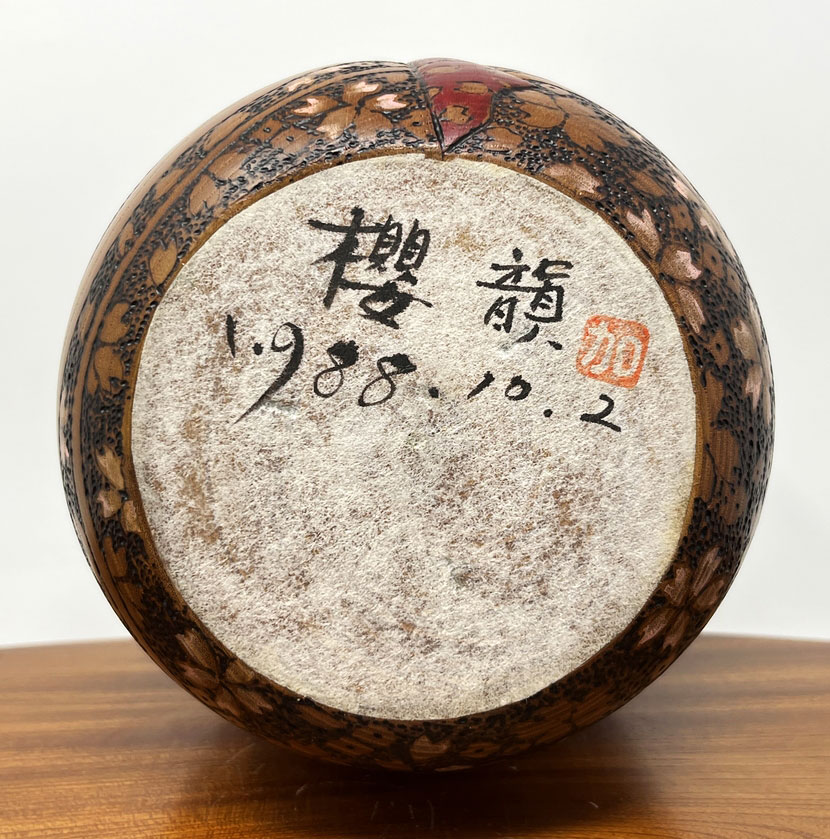 櫻韻
1.988.10.2
加